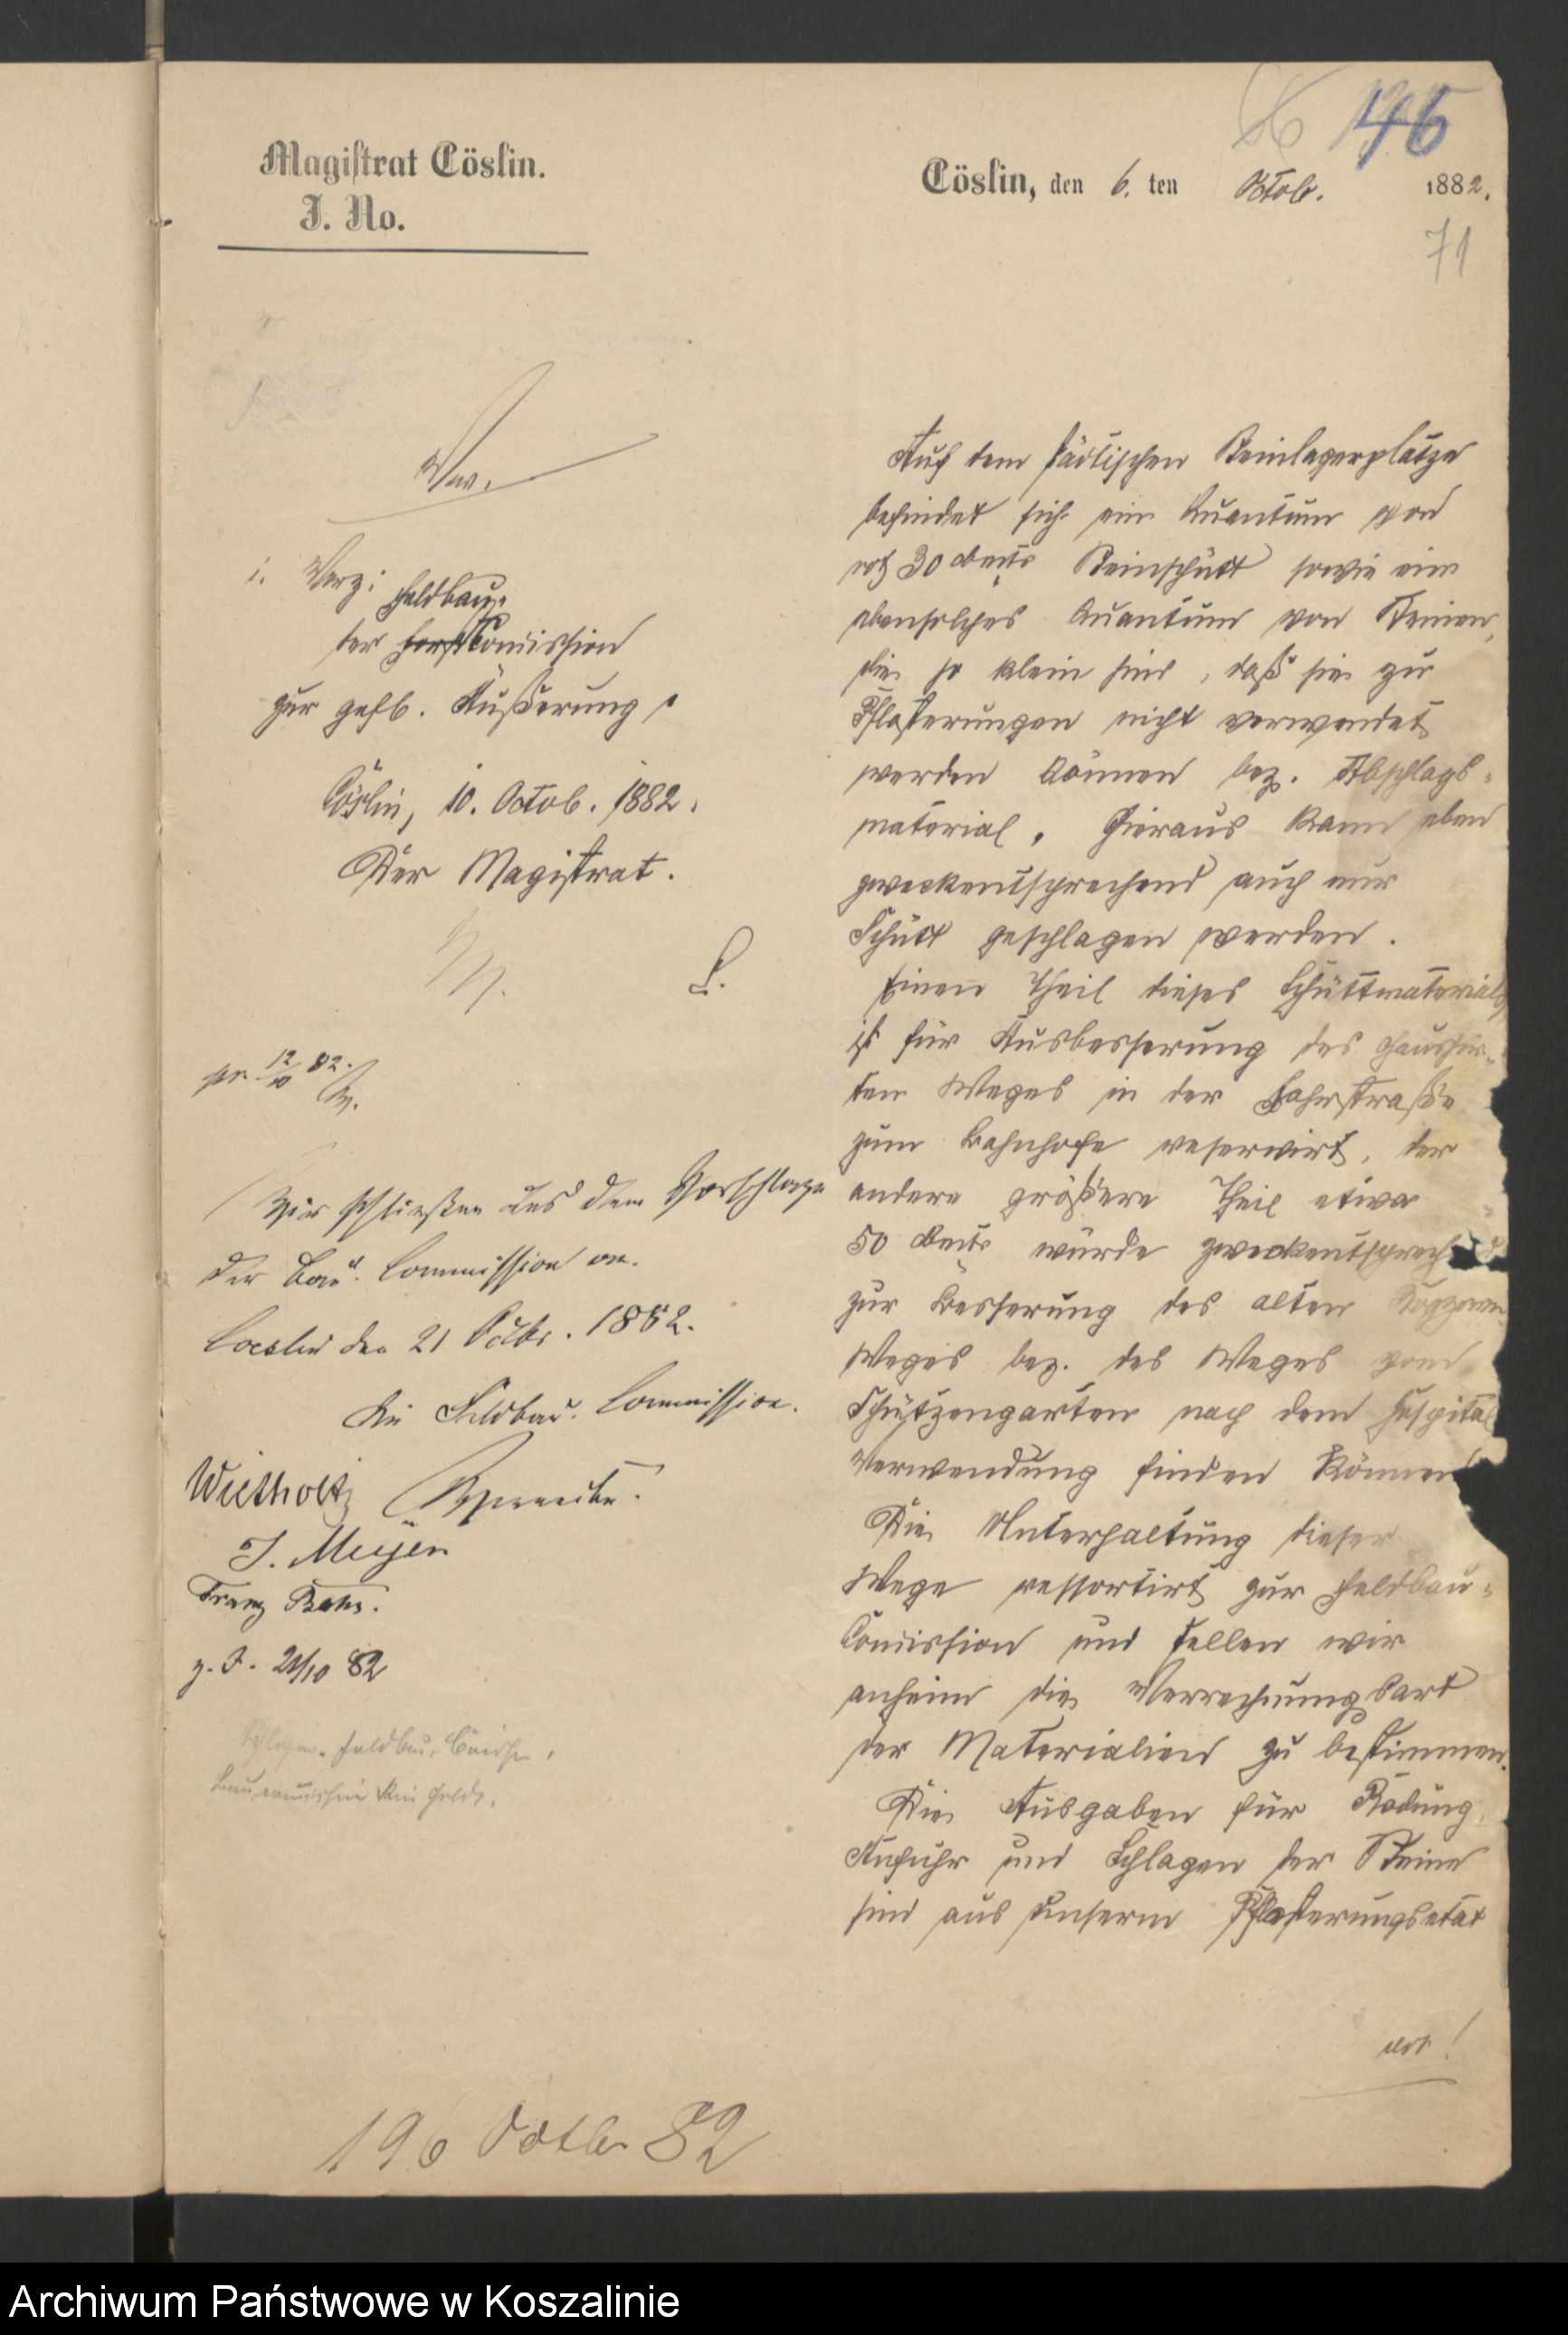 46
Magistrat Cöslin.
J. No.
Cöslin, den 6. ten Octob. 1882.
71
Auf dem städtischen Steinlagerplatze
befindet sich ein Quantum von
30 cbmtr Steinschütt sowie ein
ebensolches Quantum von Steinen,
die so klein sind, daß sie zu
Pflasterungen nicht verwendet
werden können bez. Abschlags-
material. Hieraus kann eben
zweckentsprechend auch nur
Schütt geschlagen werden.
Einen Theil dieses Schüttmaterials
ist für Ausbesserung des chaussir-
ten Weges in der Fahrstraße
zum Bahnhofe reservirt, der
andere größere Theil etwa
50 cbmtr würde zweckentsprechend
zur Besserung des alten
Weges bez. des Weges vom
Schützengarten nach dem Hospital
Verwendung finden können
Die Unterhaltung dieser
Wege ressortirt zur Feldbau-
Comission und stellen wir
anheim die Verrechnungsart
der Materialien zu bestimmen.
Die Ausgaben für Rodung,
Anfuhr und Schlagen der Steine
sind aus unserm Pflasterungsetat
1. Verz:
Feldbau-
der Forst Comission
zur gefl. Äußerung.
Cöslin, 10. Octob. 1882.
Der Magistrat.
pr. 12/10 82.
Wir schließen uns dem Vorschlage
der Bau-Commission an.
Coeslin den 21 Octbr. 1882.
Die Feldbau-Commission.
Wietholtz
J. Meyer
Franz
21/10 82
196 Octbr 82
Archiwum Państwowe w Koszalinie